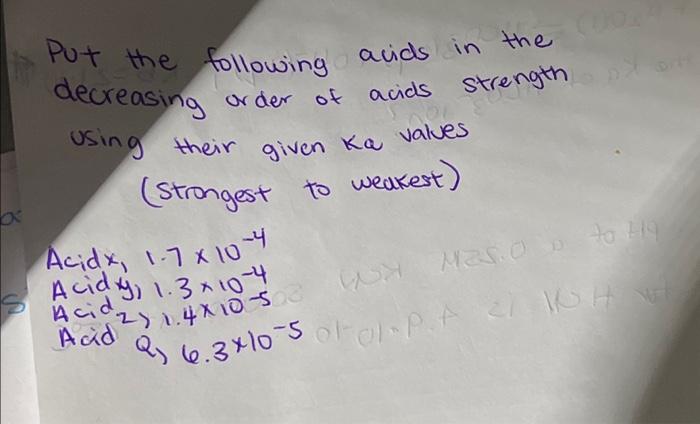 Put the following acids in the
decreasing order of acids strength
using their given Ka values
(Strongest to weakest)
Acid x, 1.7 x 10^-4
Acid y, 1.3 x 10^-4
Acid z, 1.4 x 10^-5
Acid Q, 6.3 x 10^-5